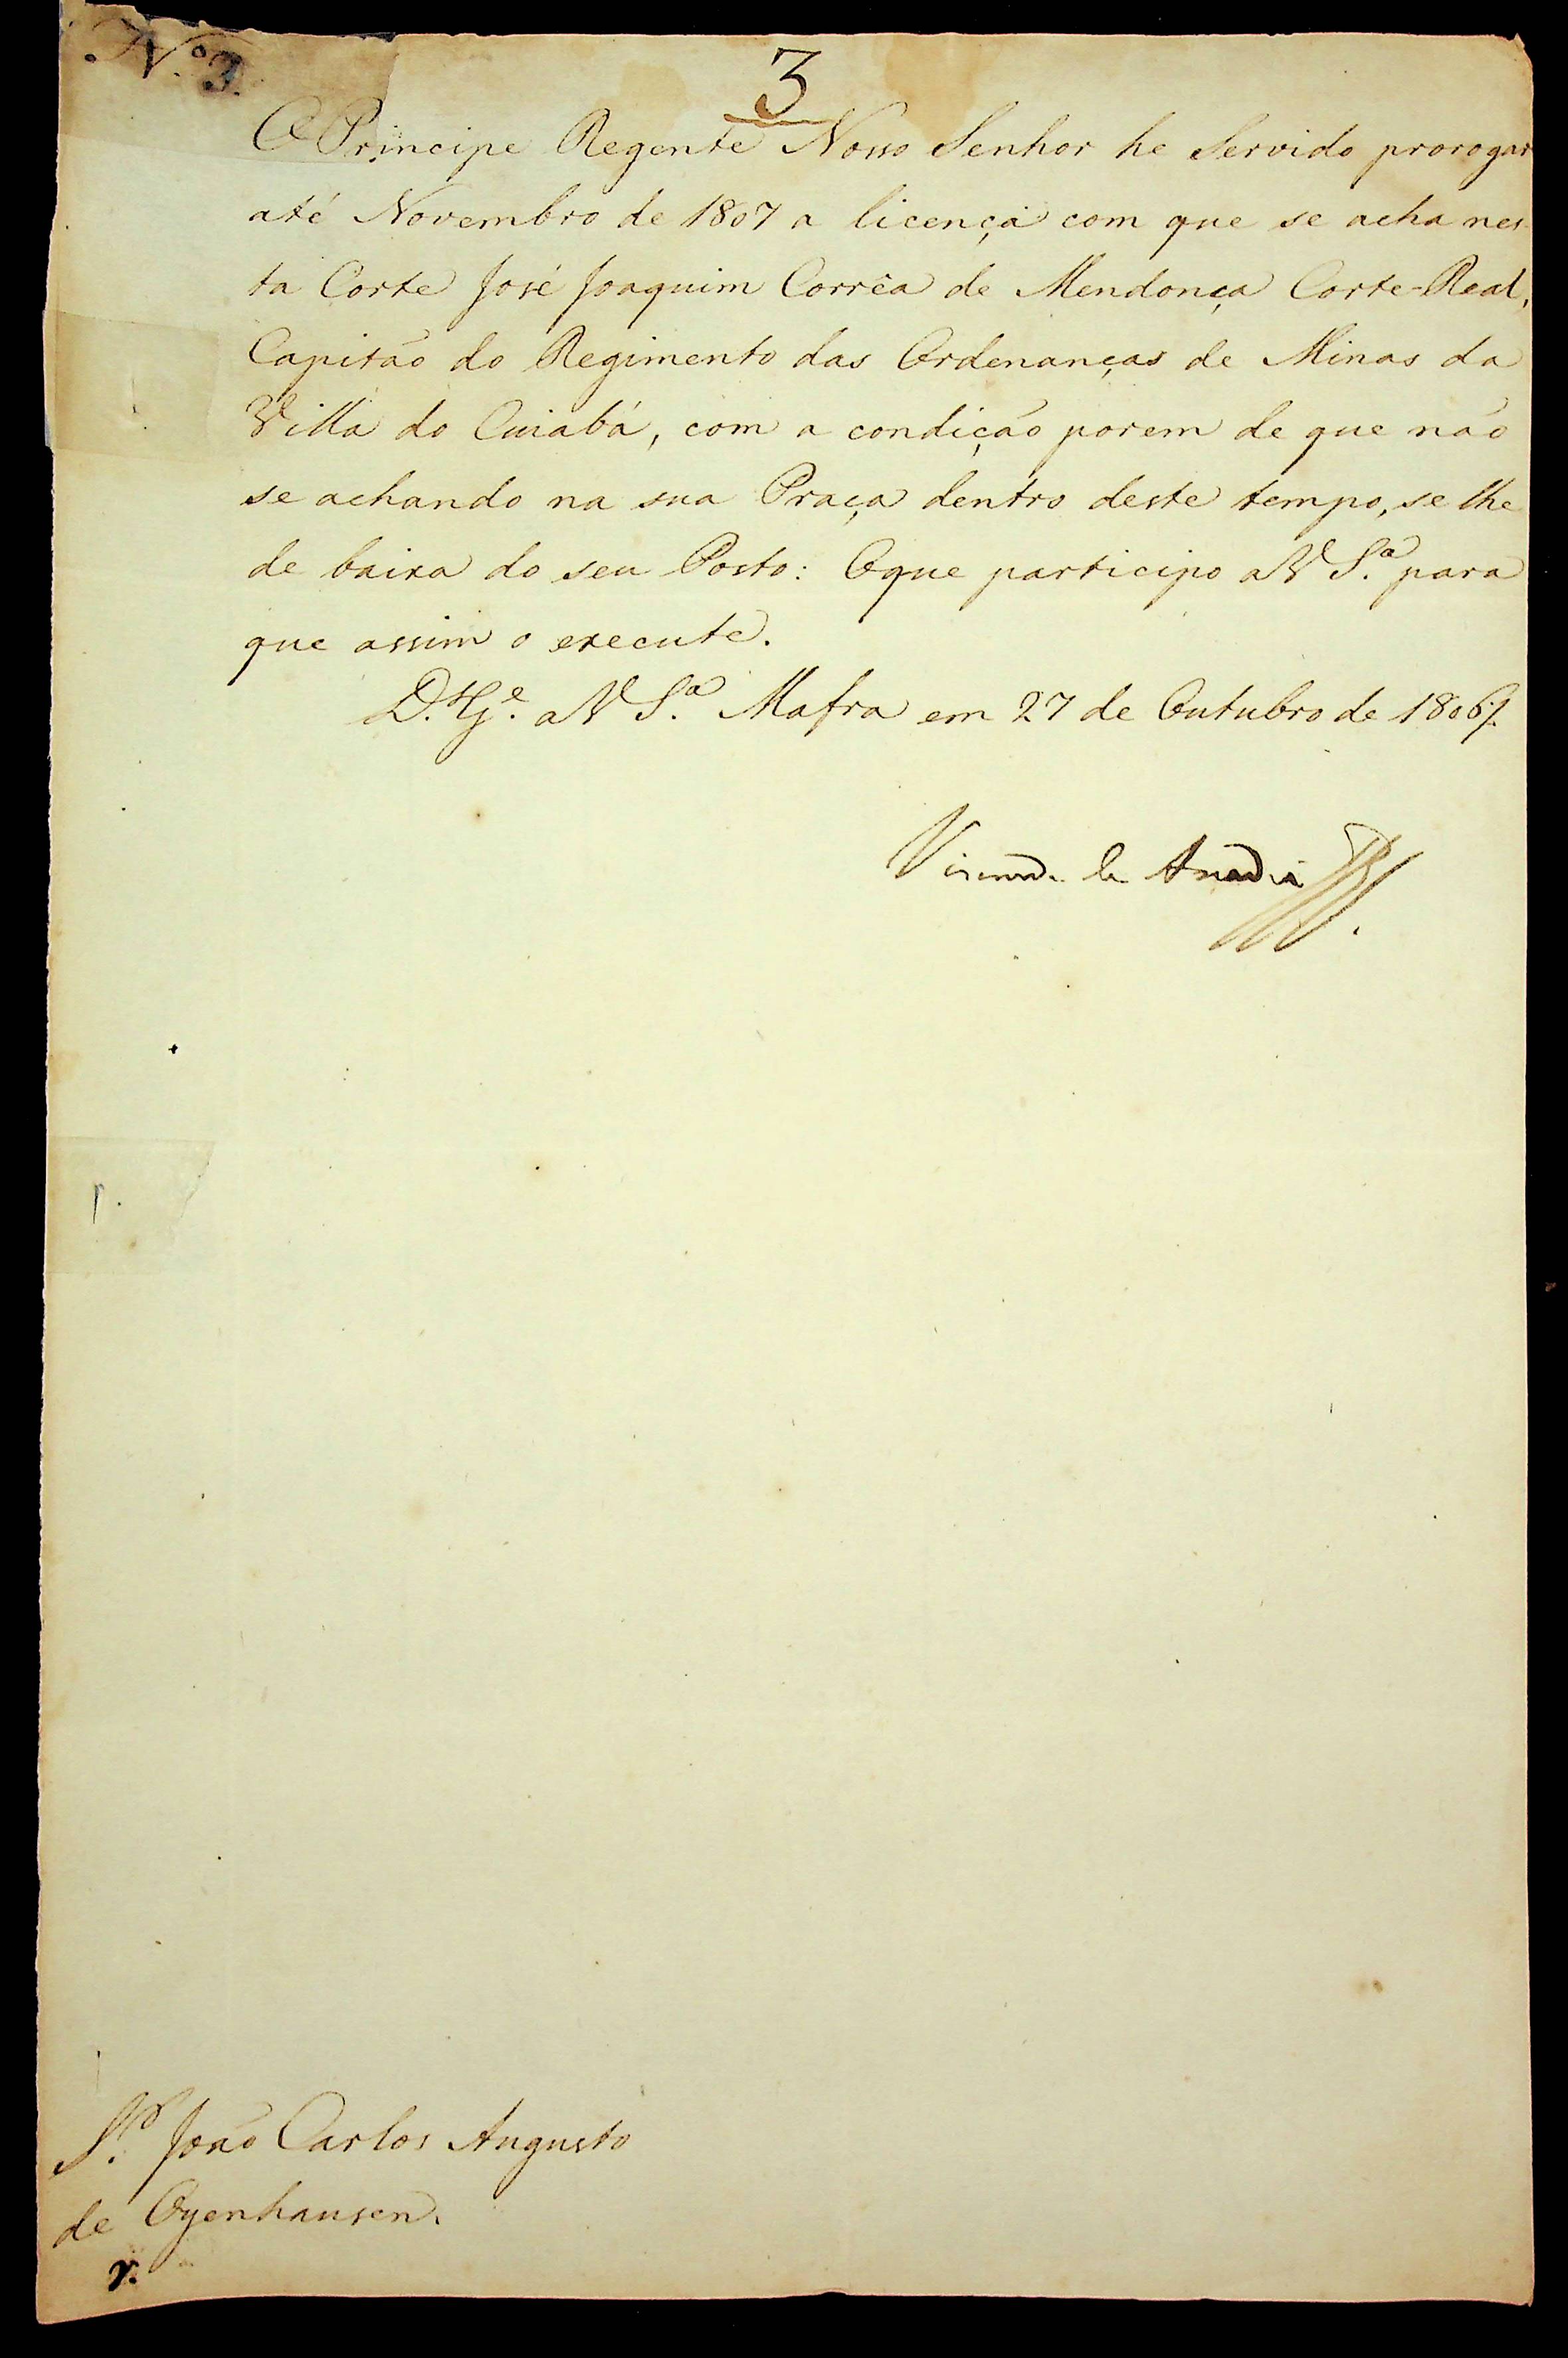 N.º 3.
3
O Principe Regente Nosso Senhor he Servido prorogar
até Novembro de 1807 a licença com que se acha nes-
ta Corte José Joaquim Corrêa de Mendonça Corte-Real,
Capitão do Regimento das Ordenanças de Minas da
Villa do Cuiabá, com a condição porem de que não
se achando na sua Praça dentro deste tempo, se lhe
de baixa do seu Posto: Oque participo a V S.ª para
que assim o execute.
D.s G.e a V S.ª Mafra em 27 de Outubro de 1806
Visconde de Anadia
S.r João Carlos Augusto
de Oyenhausen.